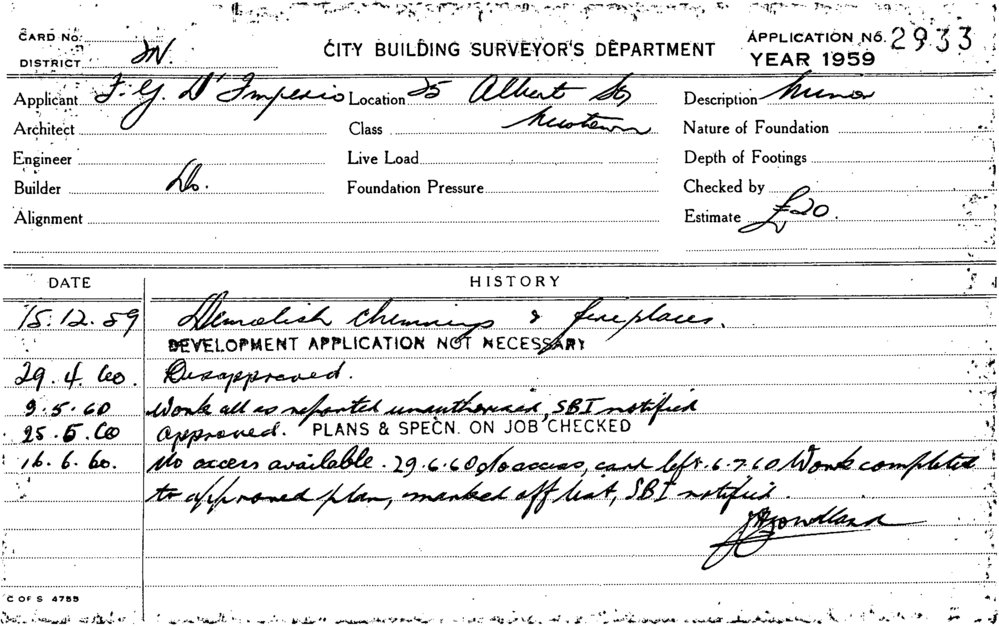 CARD No.
DISTRICT N.
CITY BUILDING SURVEYOR'S DEPARTMENT
APPLICATION No. 2933
YEAR 1959
Applicant F. G. D'Imperio Location 25 Albert St, Description Minor
Architect Class Newtown Nature of Foundation
Engineer Live Load Depth of Footings
Builder Do. Foundation Pressure Checked by
Alignment Estimate £20.
DATE HISTORY
15.12.59 Demolish chimneys & fireplaces.
DEVELOPMENT APPLICATION NOT NECESSARY
29.4.60. Disapproved.
9.5.60 Work all as reported unauthorised, SBI notified
25.5.60 Approved. PLANS & SPECN. ON JOB CHECKED
16.6.60. No access available. 29.6.60 No access, card left. 6.7.60 Work completed
to approved plan, marked off list, SBI notified.
C OF S 4755